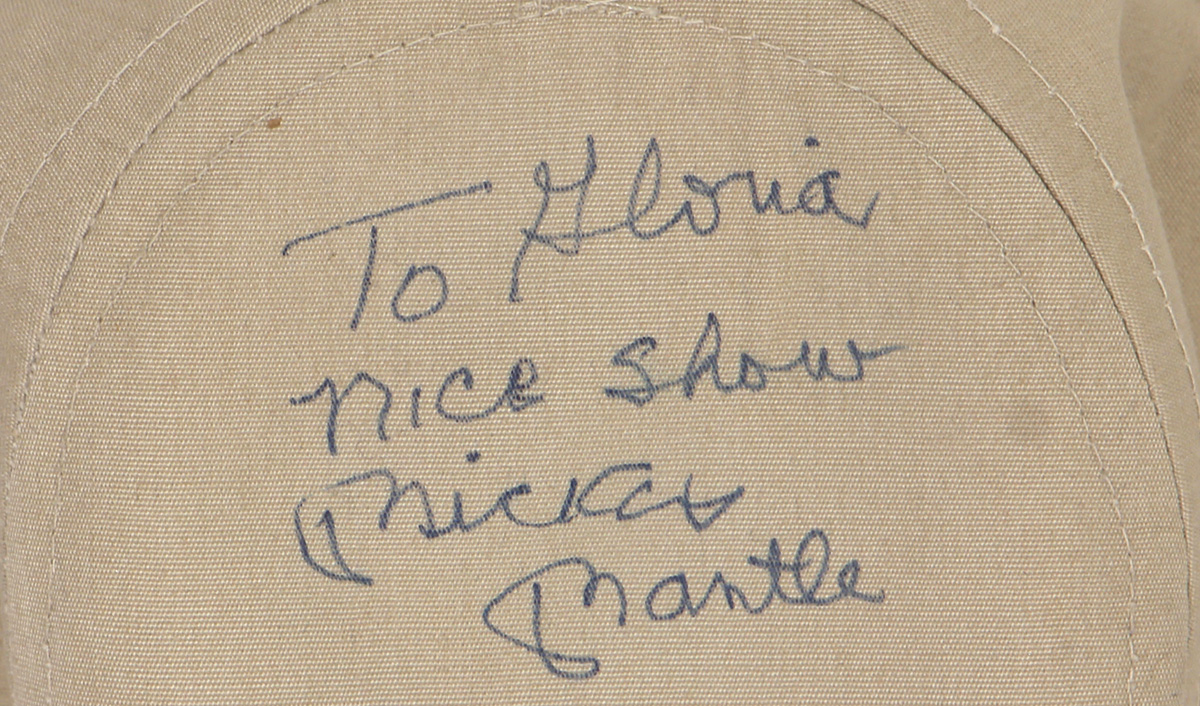 To Gloria
nice show
Mickey
Mantle